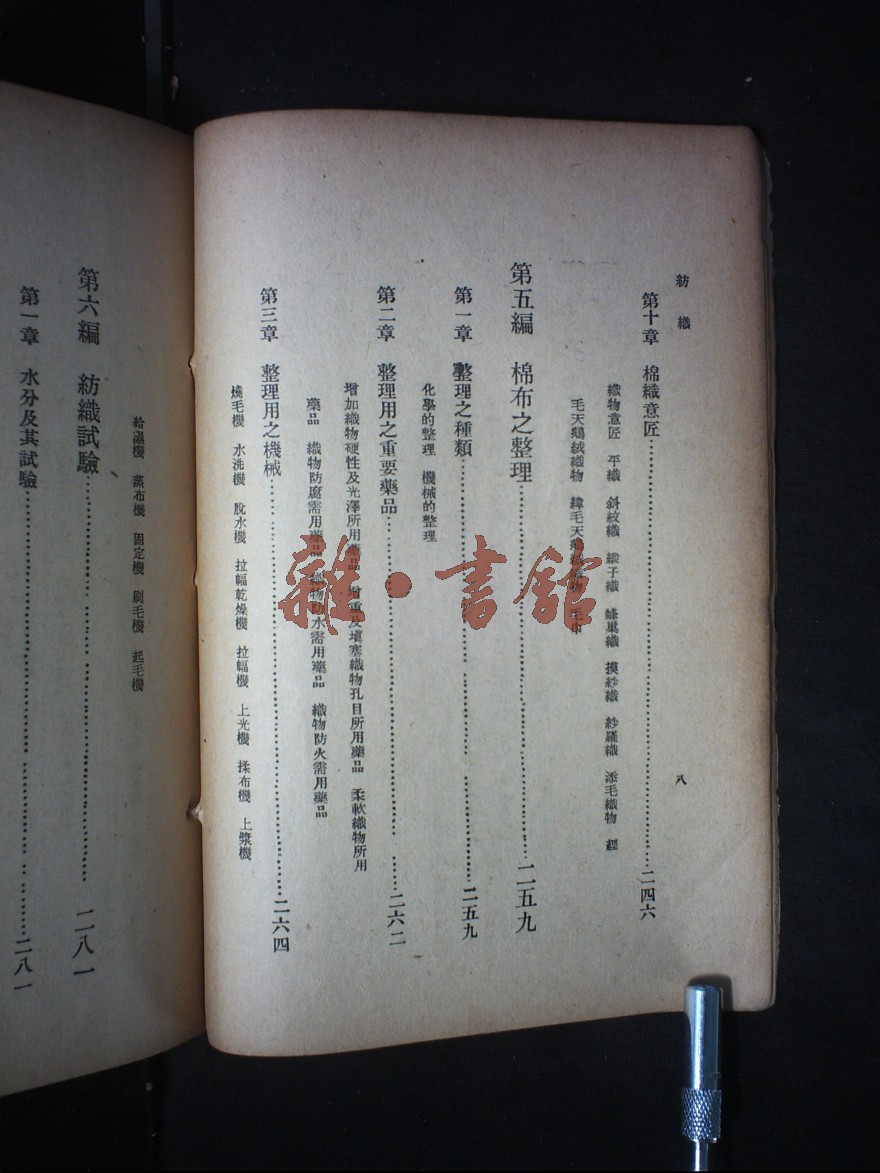 紡織
八
第十章 棉織意匠……二四六
織物意匠 平織 斜紋織 緞子織 蜂巢織 摸紗織 紗羅織 添毛織物 經
毛天鵝絨織物 緯毛天鵝絨織物 毛巾
第五編 棉布之整理……二五九
第一章 整理之種類……二五九
化學的整理 機械的整理
第二章 整理用之重要藥品……二六二
增加織物硬性及光澤所用藥品 增重及填塞織物孔目所用藥品 柔軟織物所用
藥品 織物防腐需用藥品 織物防水需用藥品 織物防火需用藥品
第三章 整理用之機械……二六四
燒毛機 水洗機 脫水機 拉幅乾燥機 拉幅機 上光機 揉布機 上漿機
給濕機 蒸布機 固定機 刷毛機 起毛機
第六編 紡織試驗……二八一
第一章 水分及其試驗……二八一
雜·書館